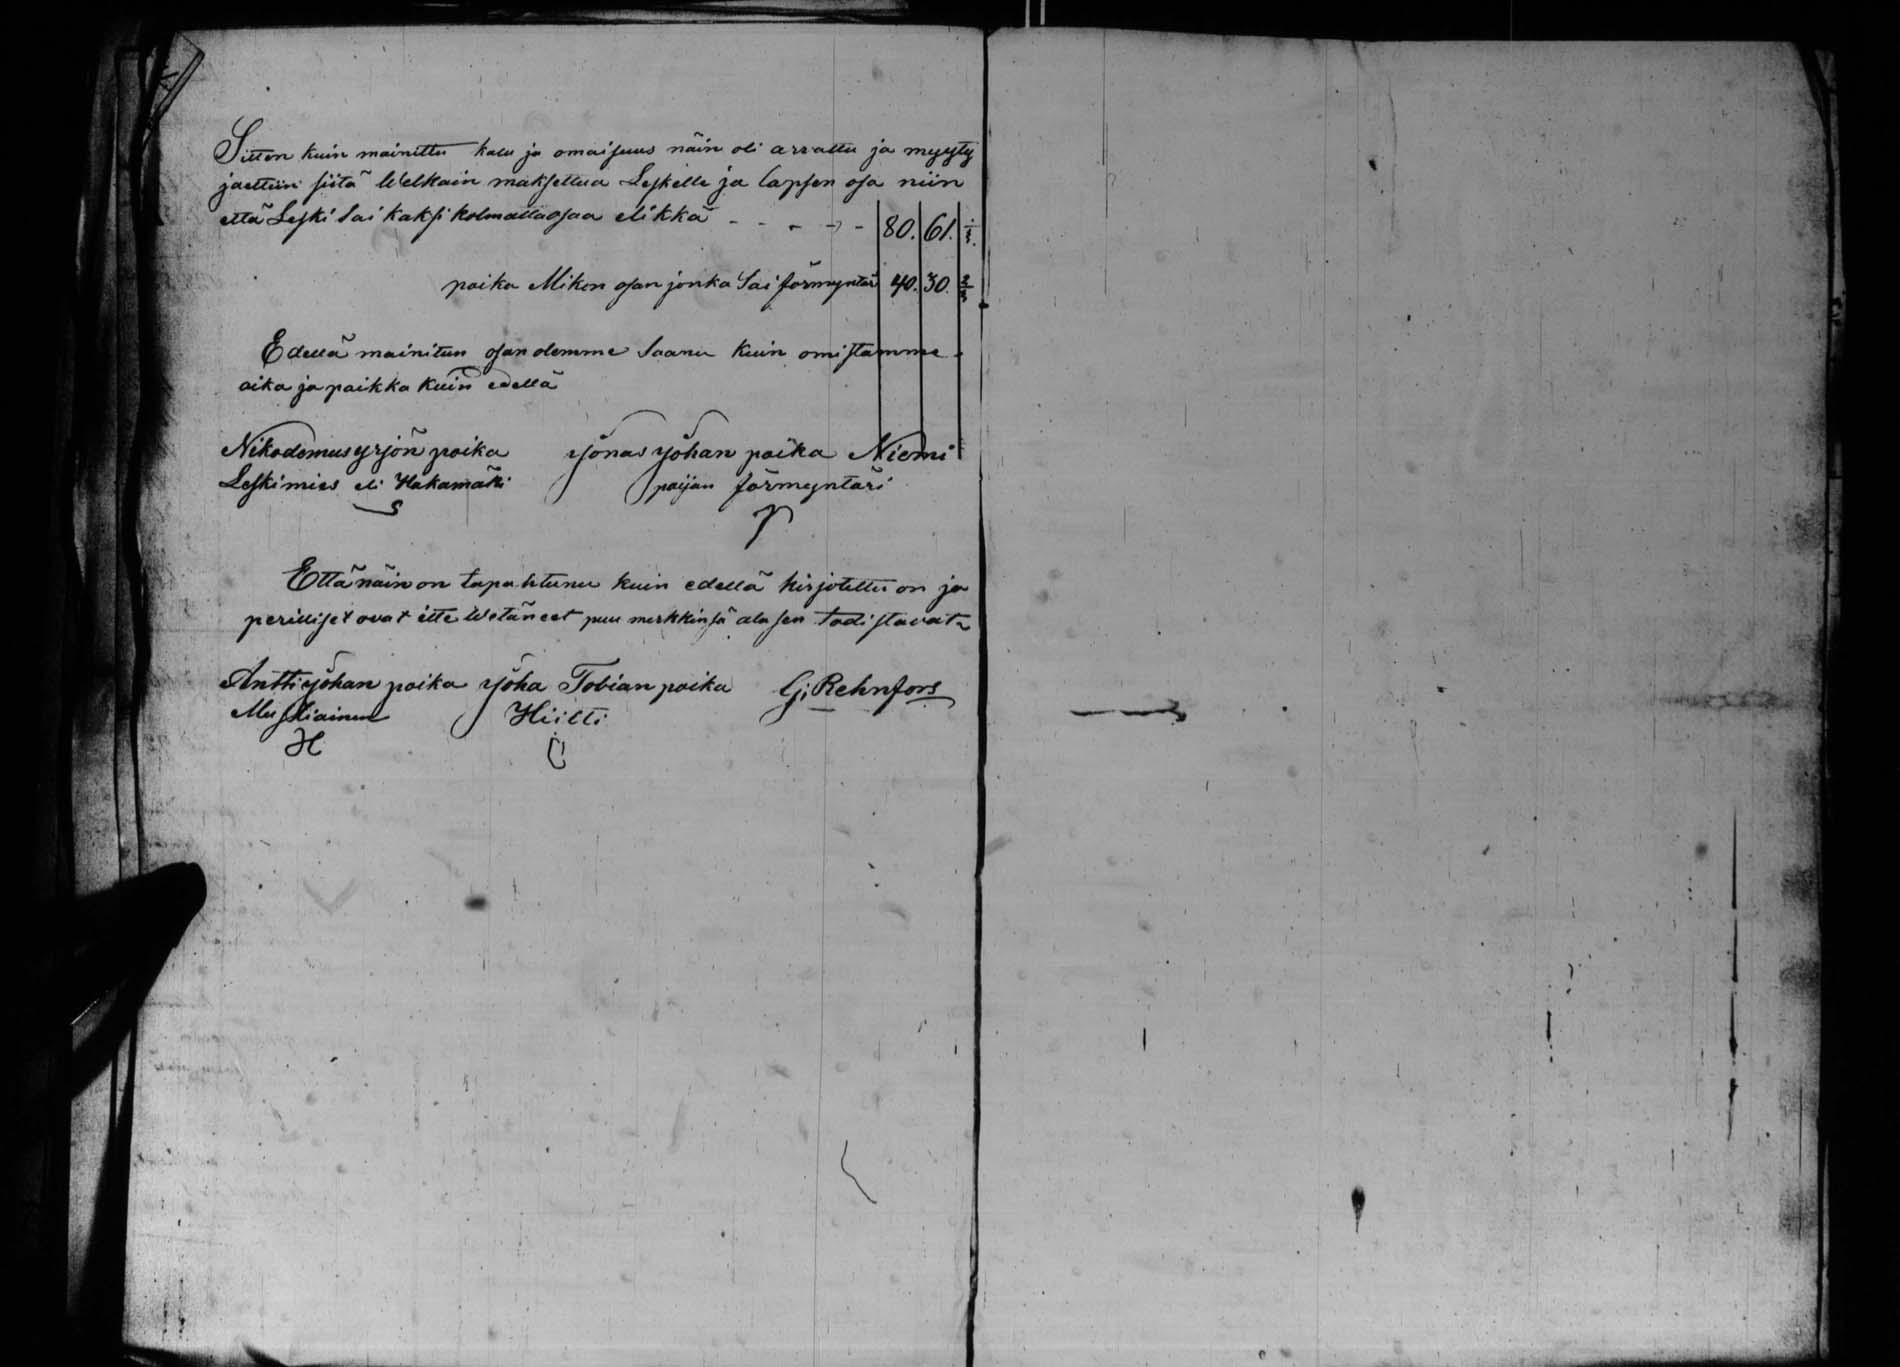 Sitten kuin mainittu kalu ja omaisuus näin oli arvattu ja myyty
jaettiin siitä Welkain maksettua Leskelle ja lapsen osa niin
että Leski sai kaksi kolmattaosaa elikkä - - - - - 80. 61. 1/3.
poika Mikon osan jonka Sai förmyntäri 40. 30. 2/3
Edellä mainitun osan olemme Saanu kuin omistamme
aika ja paikka kuin edellä
Nikodemus yrjön poika Jönas Johan poika Niemi
Leskimies eli Hakamäki poijan förmyntäri
Että näin on tapahtunu kuin edellä kirjotettu on ja
perilliset ovat itte Wetäneet puu merkkinsä ala sen todistavat
Antti Johan poika Joha Tobian poika G; Rehnfors
Muhliainen Hiitti
H